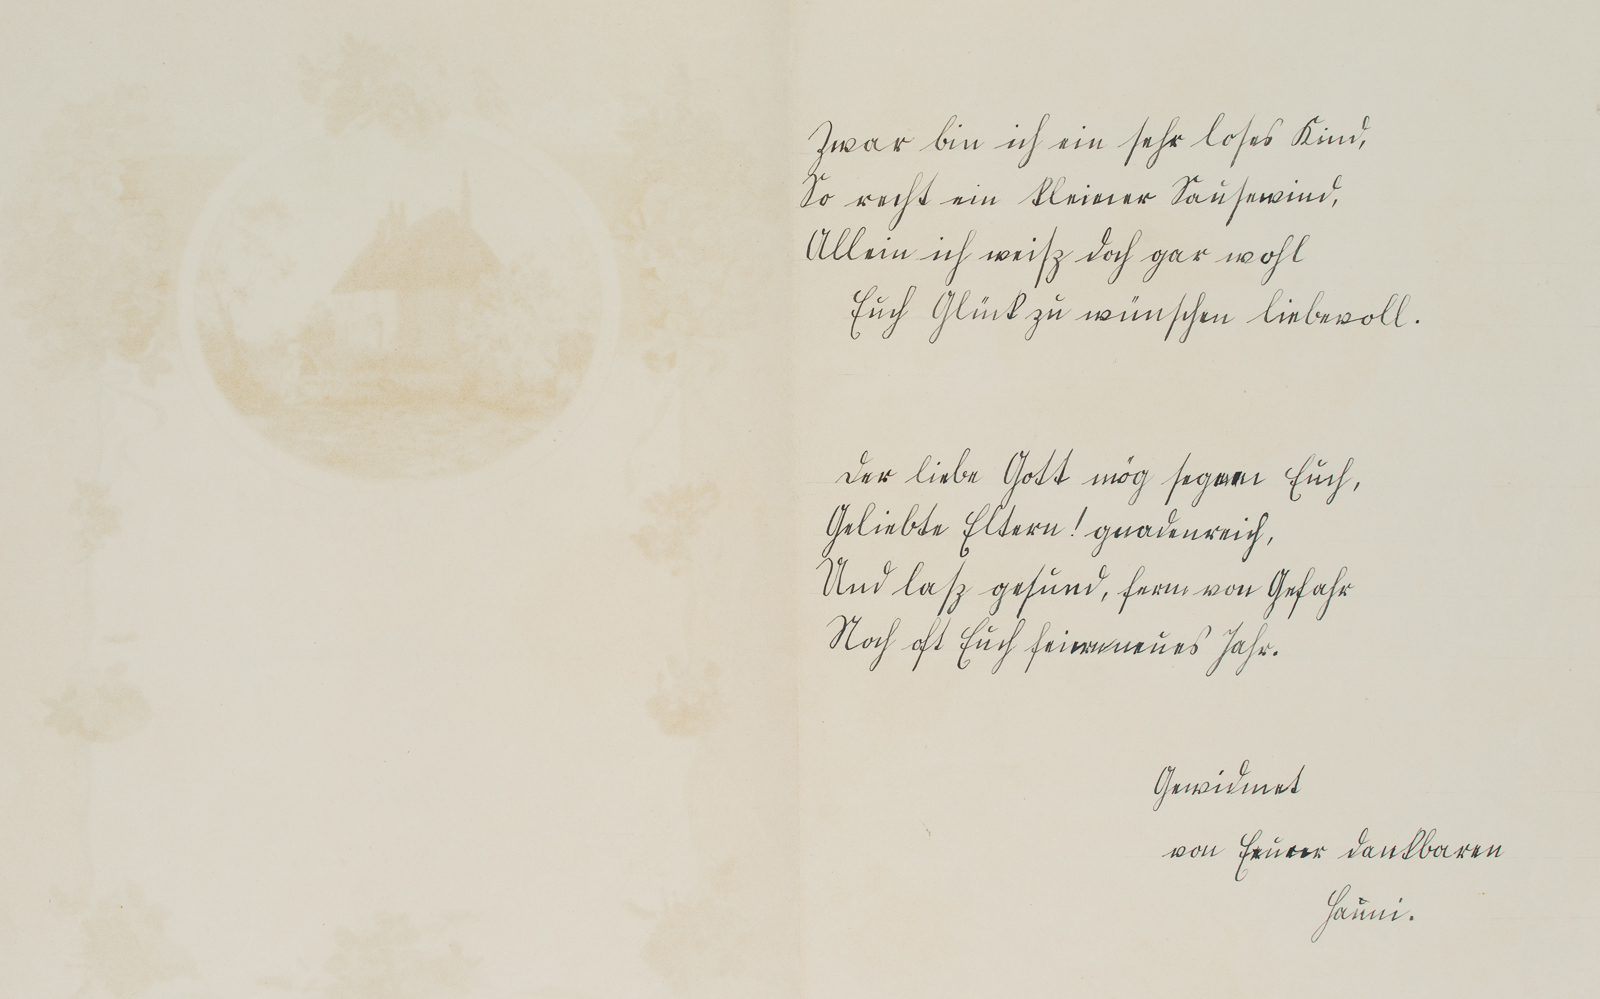 Zwar bin ich ein sehr loses Kind,
So recht ein kleiner Sausewind,
Allein ich weiß doch gar wohl
Euch Glück zu wünschen liebevoll.
Der liebe Gott mög segnen Euch,
Geliebte Eltern! gnadenreich,
Und laß gesund, fern von Gefahr
Noch oft Euch feiern neues Jahr.
Gewidmet
von Eurer dankbaren